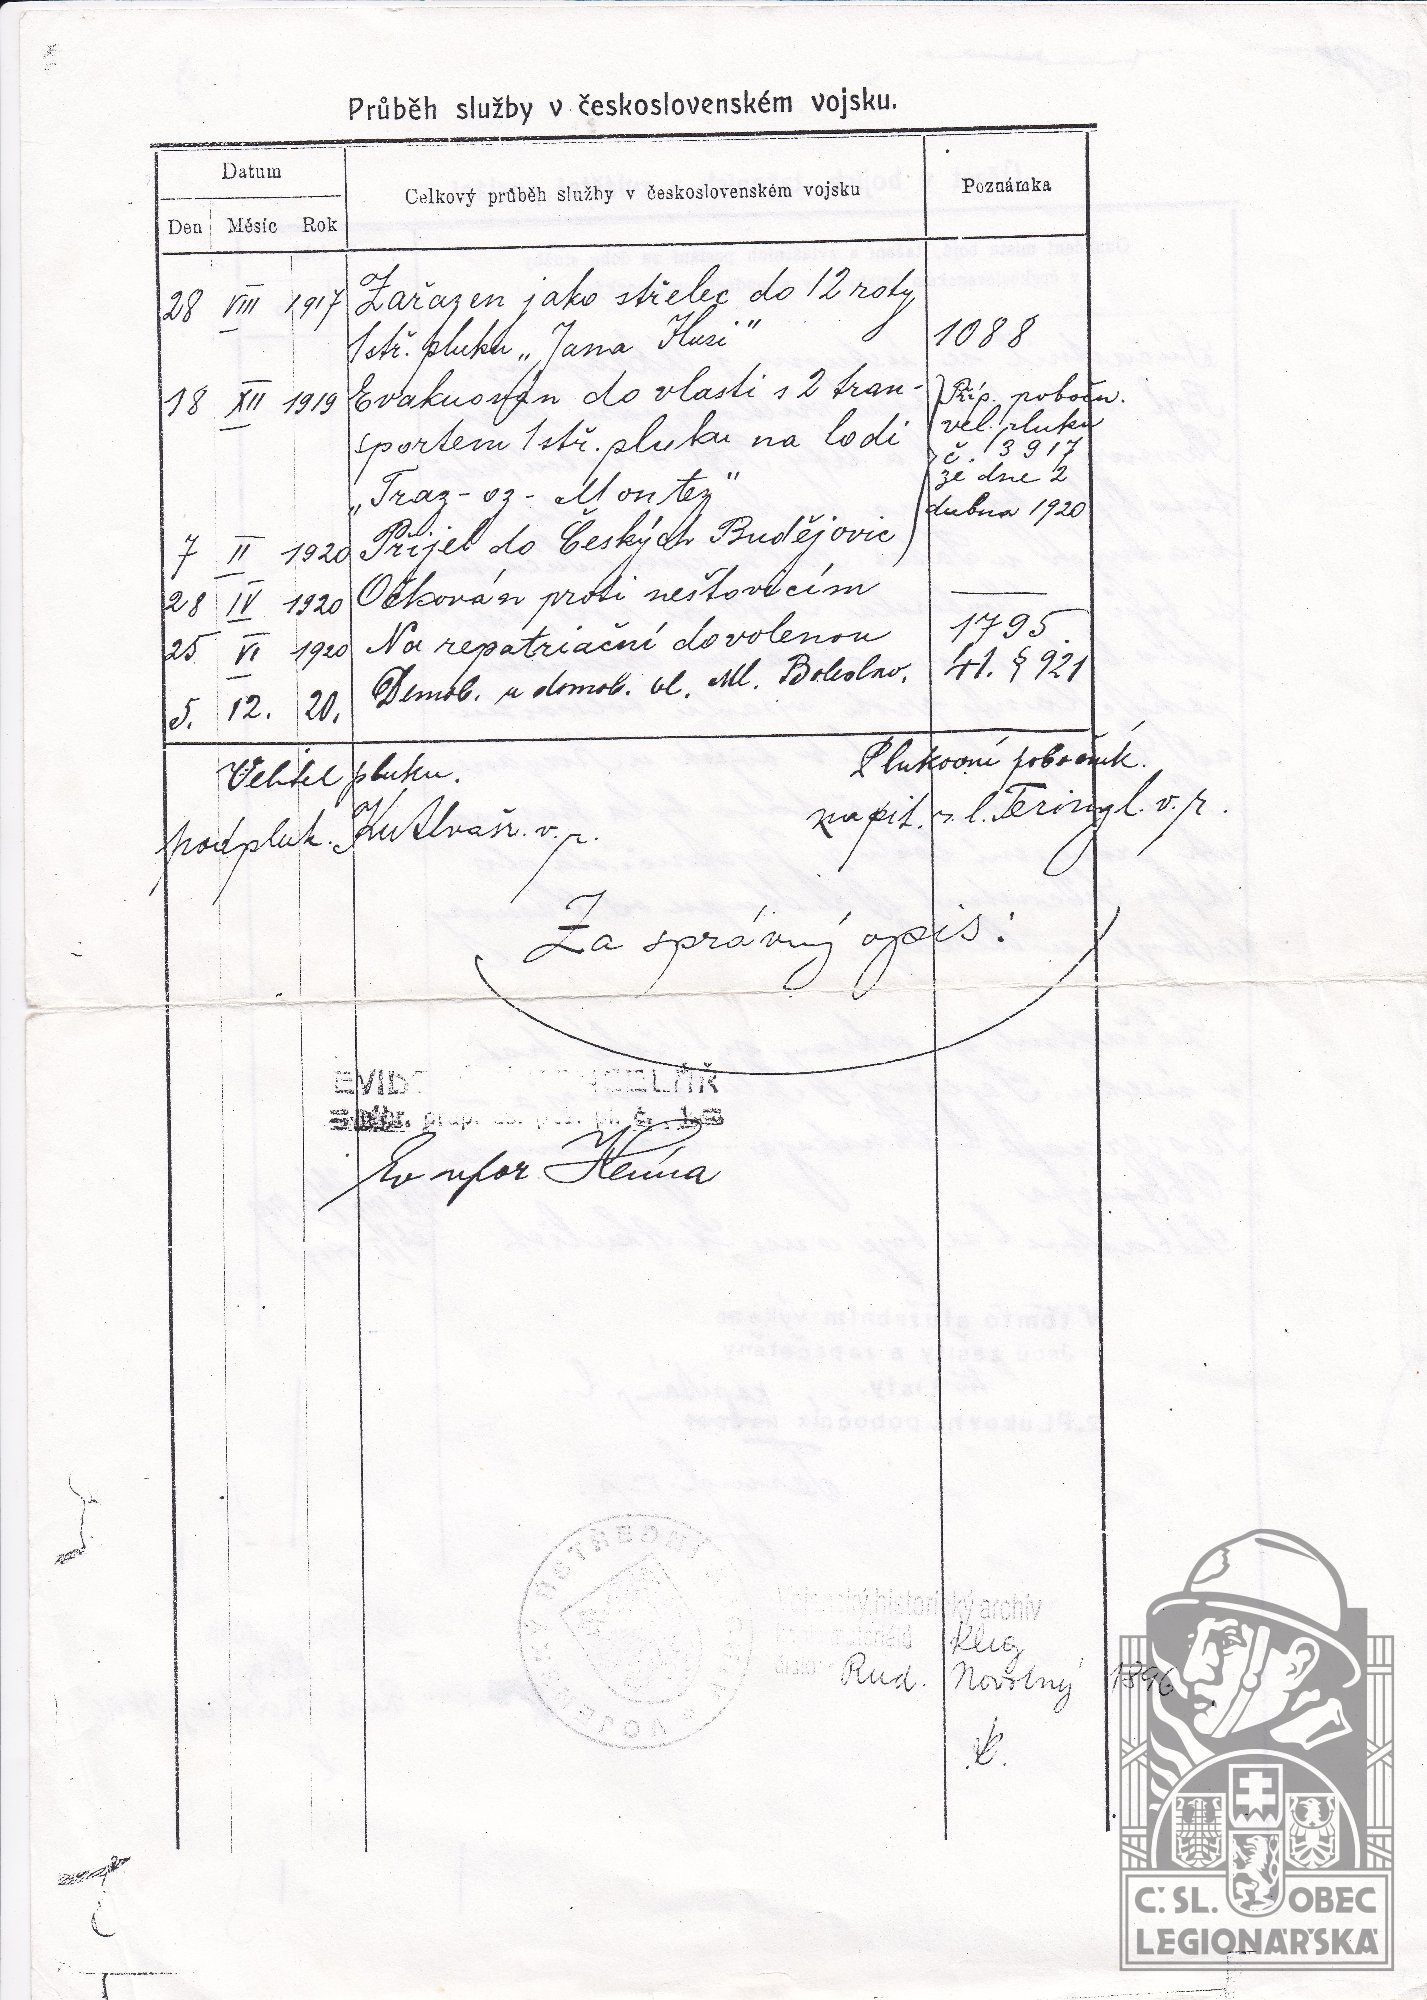 Průběh služby v československém vojsku.
Datum
Celkový průběh služby v československém vojsku
Poznámka
Den Měsíc Rok
28 VIII 1917 Zařazen jako střelec do 12 roty
1 stř. pluku „Jana Husi" 1088
18 XII 1919 Evakuován do vlasti s 2 tran-
sportem 1 stř. pluku na lodi
„Traz-oz-Montez"
Příp. poboču.
vel. pluku
č. 3917
ze dne 2
dubna 1920
7 II 1920 Přijel do Českých Budějovic
28 IV 1920 Očkován proti neštovicím
25 VI 1920 Na repatriační dovolenou 1795.
5. 12. 20. Demob. u domob. vl. Ml. Boleslav. 41. § 921
Velitel pluku.
Plukovní pobočník.
podpluk. Kutlvašr. v. r.
kapit. r. l. Teringl. v. r.
Za správný opis:
Henna
historický archiv
Rud. Novotný 1896
Č.SL. OBEC
LEGIONÁŘSKÁ